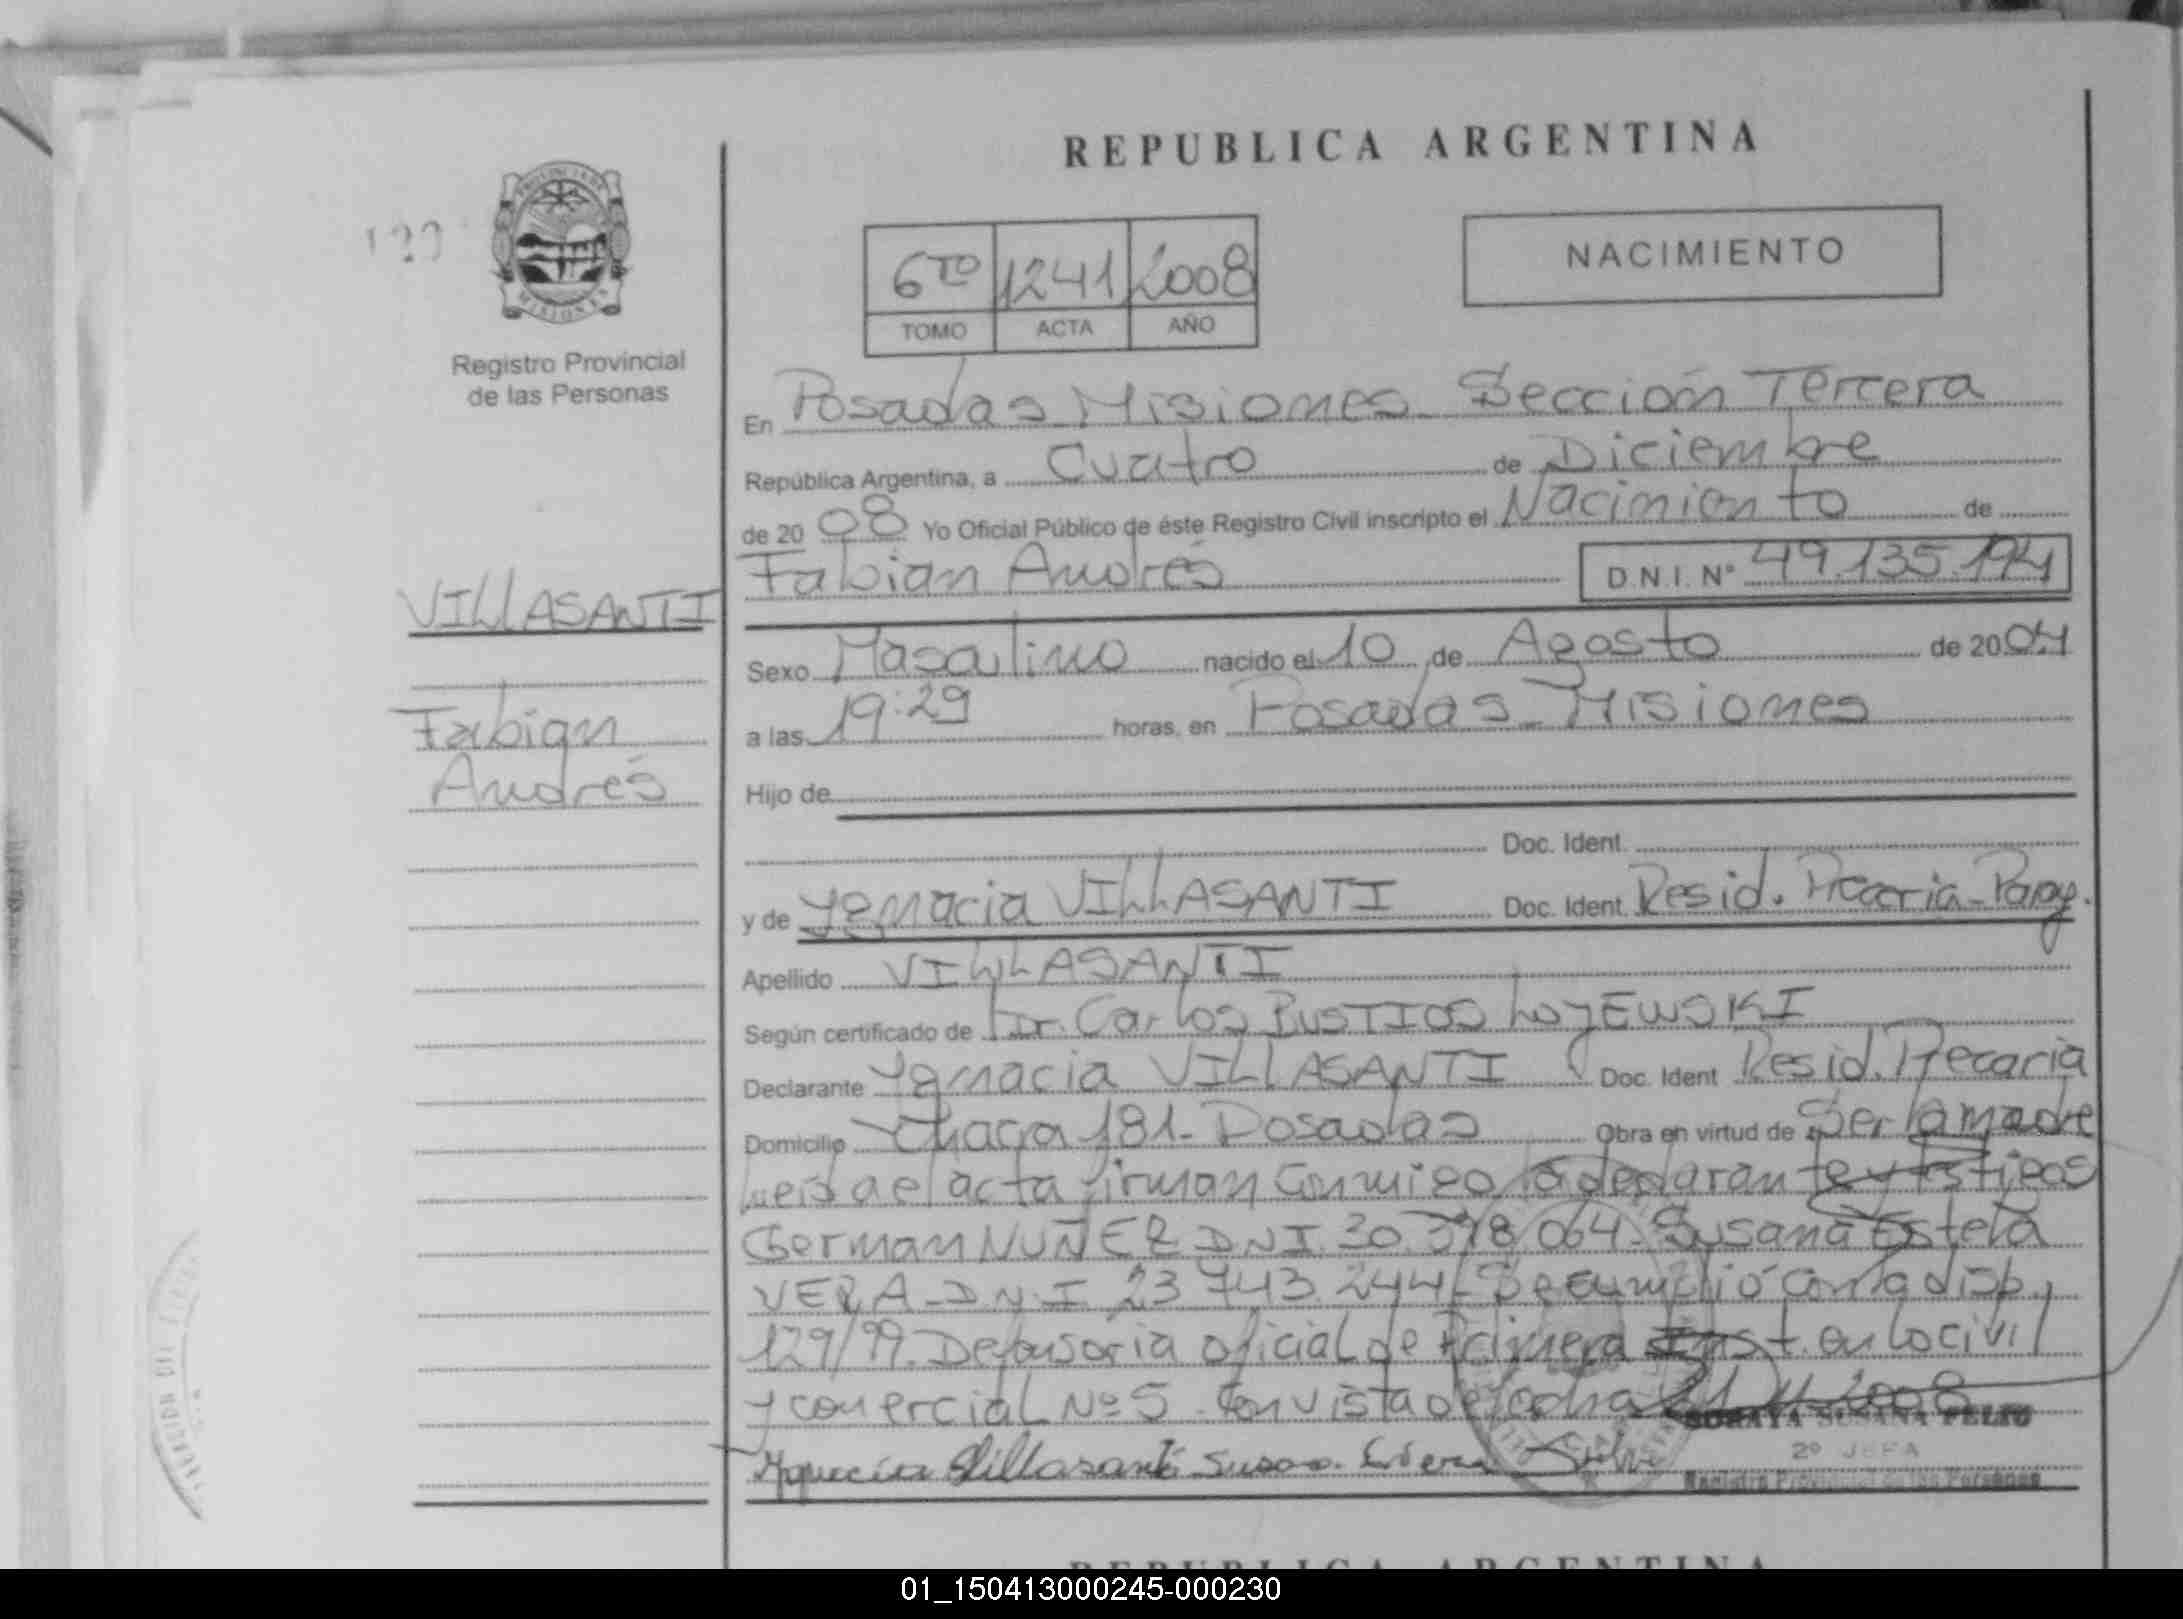 REPUBLICA ARGENTINA
PROVINCIA DE
MISIONES
Registro Provincial
de las Personas
6TO 1241 2008
TOMO ACTA AÑO
NACIMIENTO
En Posadas Misiones Sección Tercera
República Argentina, a Cuatro de Diciembre
de 20 08 Yo Oficial Público de éste Registro Civil inscripto el Nacimiento de
Fabian Andrés D.N.I. Nº 49.135.194
VILLASANTI
Fabian
Andrés
Sexo Masculino nacido el 10 de Agosto de 20 04
a las 19:29 horas, en Posadas Misiones
Hijo de
Doc. Ident.
y de Ygnacia VILLASANTI Doc. Ident. Resid. Precaria-Parag.
Apellido VILLASANTI
Según certificado de Dr. Carlos BUSTIOS LOJEWSKI
Declarante Ygnacia VILLASANTI Doc. Ident Resid. Precaria
Domicilio Chacra 181- Posadas Obra en virtud de Ser la madre
Leida el acta firman conmigo la declarante y testigos
German NUÑEZ D.N.I. 30.378.064- Susana Estela
VERA-D.N.I 23.743.244- Se cumplió con la disp.
129/99. Defensoria oficial de Primera Inst. en lo civil
y comercial Nº 5. Con vista de fecha 21-11-2008
Ygnacia Villasanti Susana
SORAYA SUSANA FELTO
2º JEFA
Registro Provincial de las Personas
REPUBLICA ARGENTINA
01_150413000245-000230